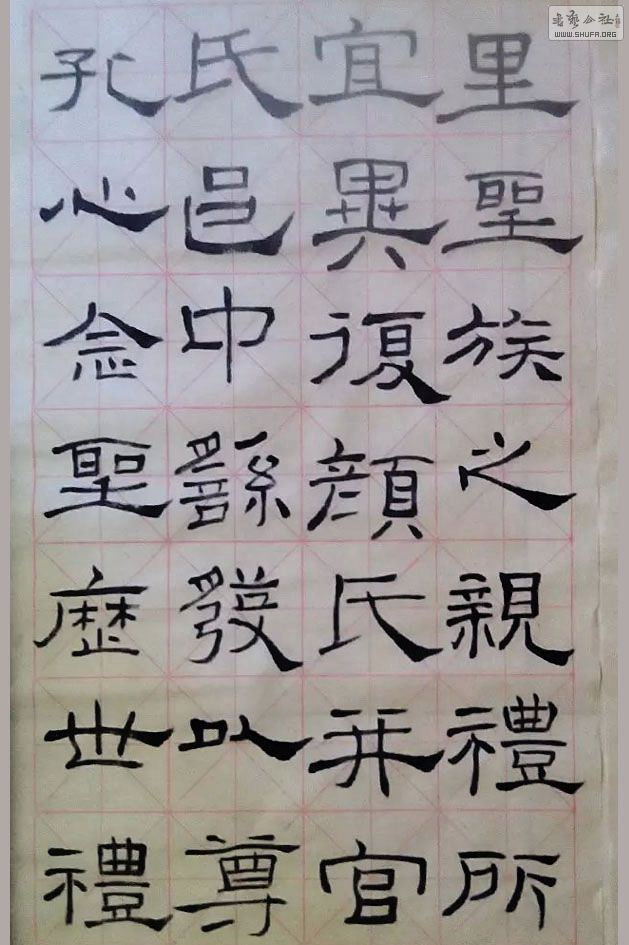 里聖族之親禮所
宜異復顏氏并官
氏邑中繇發以尊
孔心念聖歷世禮
書藝公社
WWW.SHUFA.ORG